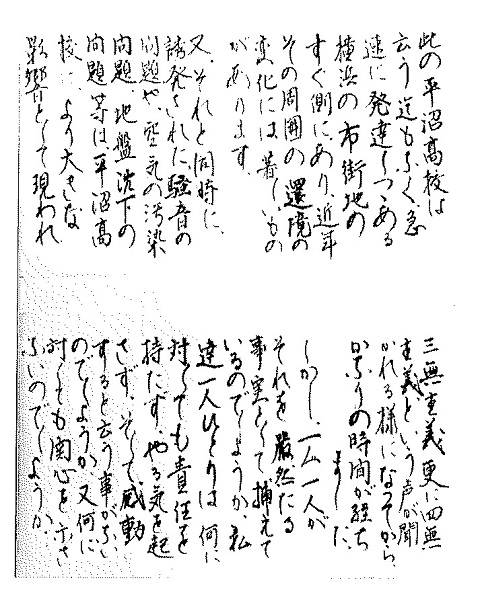 此の平沼高校は
云う迄もなく急
速に発達しつゝある
横浜の市街地の
すぐ側にあり、近年
その周囲の還境の
変化には著しいもの
があります。
又、それと同時に、
誘発された騒音の
問題や空気の汚染
問題、地盤沈下の
問題等は、平沼高
校に、より大きな
影響として現われ
三無主義、更に四無
主義という声が聞
かれる様になってから、
かなりの時間が経ち
ました。
しかし、一人一人が
それを厳然たる
事実として捕えて
いるのでしょうか、私
達一人ひとりは何に
対しても責任を
持たず、やる気を起
さず、そして感動
すると云う事がない
のでしょうか又何に
対しても関心を示さ
ないのでしょうか。